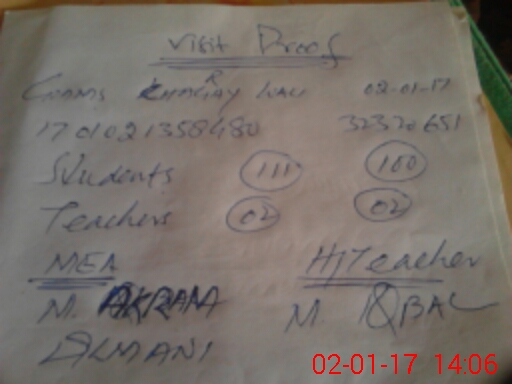 Visit Proof
02-01-17
170102135848 32320651
Students 111 100
Teachers 02 02
MEA H/Teacher
M. AKRAM M. IQBAL
ALMANI
02-01-17 14:06